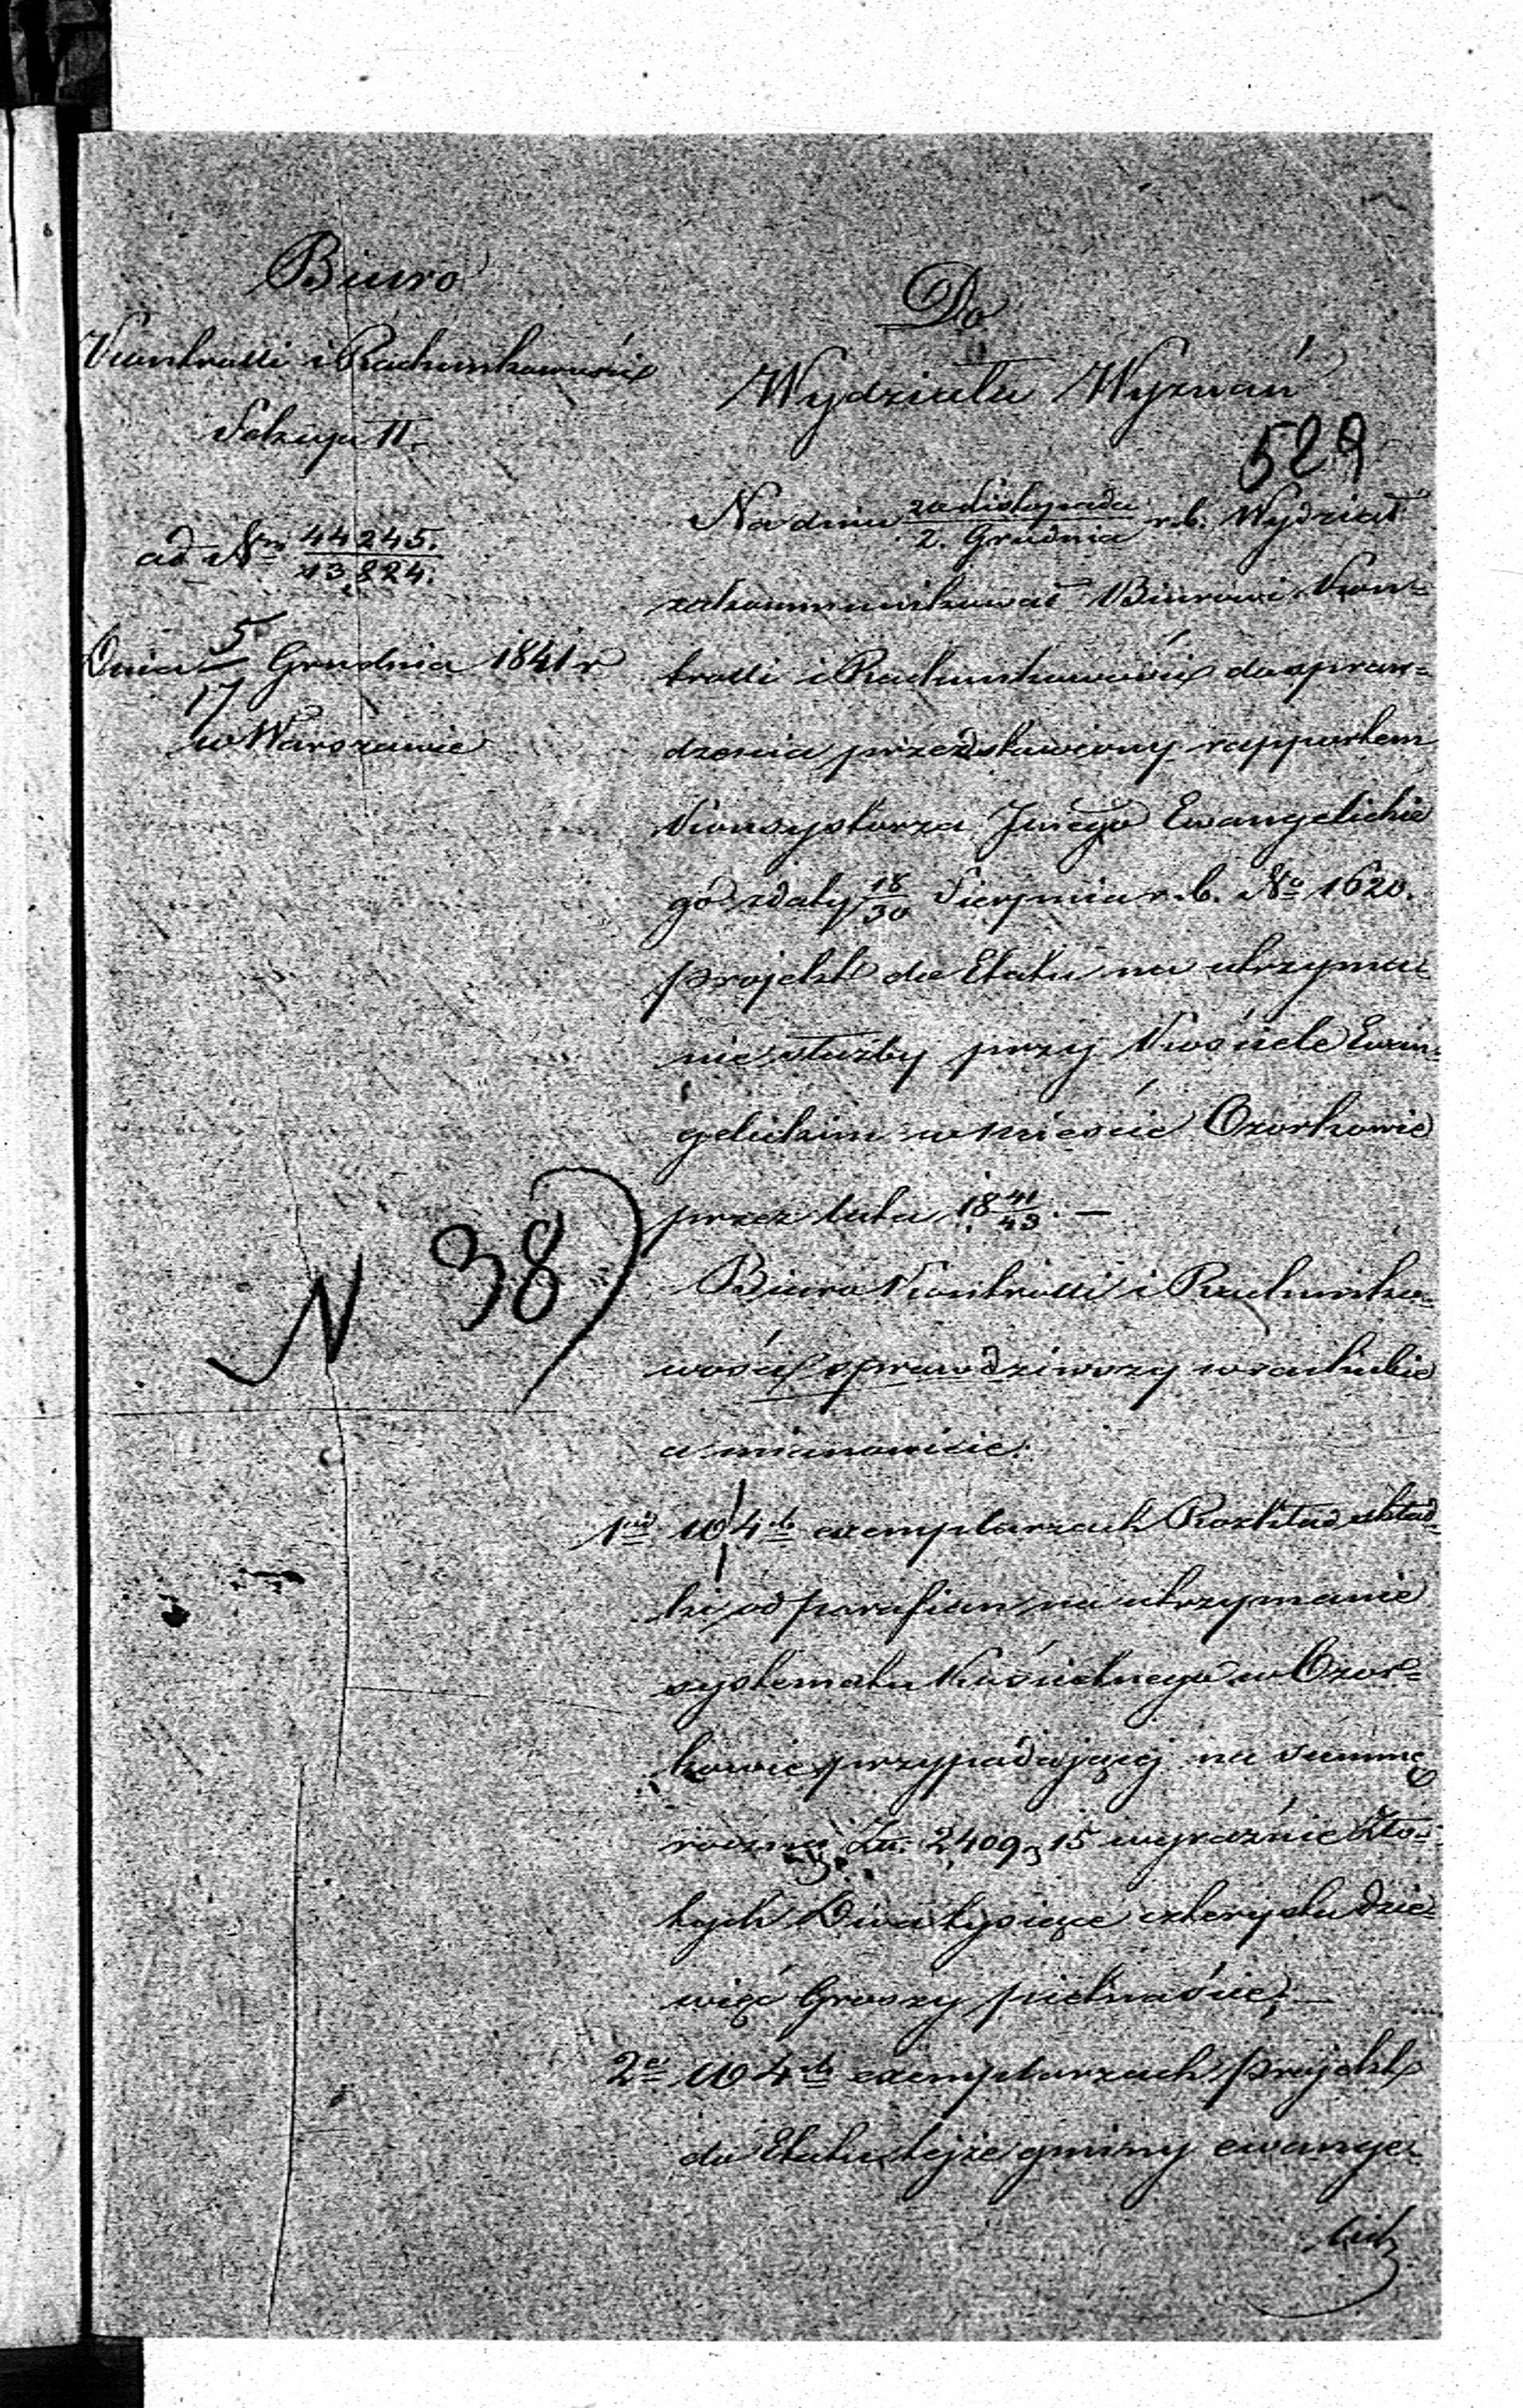 Biuro
Kontrolli i Rachunkowości
Sekcya II.
ad Nrm 44245./13,824.
Dnia 5/17 Grudnia 1841 r
w Warszawie
N 38
Do
Wydziału Wyznań
529
Na dniu 20 Listopada/2. Grudnia r.b. Wydział
zakommunikował Biurowi Kon-
trolli i Rachunkowości do spraw-
dzenia przedstawiony rapportem
Konsystorza Jnego Ewangelickie
go z daty 18/30 Sierpnia r.b. No 1620.
projekt do Etatu na utrzyma-
nie służby przy Kościele Ewan-
gelickim w mieście Ozorkowie
przez lata 18 41/43. —
Biuro Kontrolli i Rachunko-
wości sprawdziwszy w rachubie
a mianowicie:
1nd w 4ch exemplarzach Rozkład skład-
ki od parafian na utrzymanie
systematu Kościelnego w Ozor-
kowie przypadającej na summę
roczną Zł. 2409 g 15 wyraźnie Zło-
tych Dwa tysiące czterysta dzie-
więć Groszy piętnaście; —
2e w 4ch exemplarzach projekt
do Etatu tejże gminy ewange-
lick